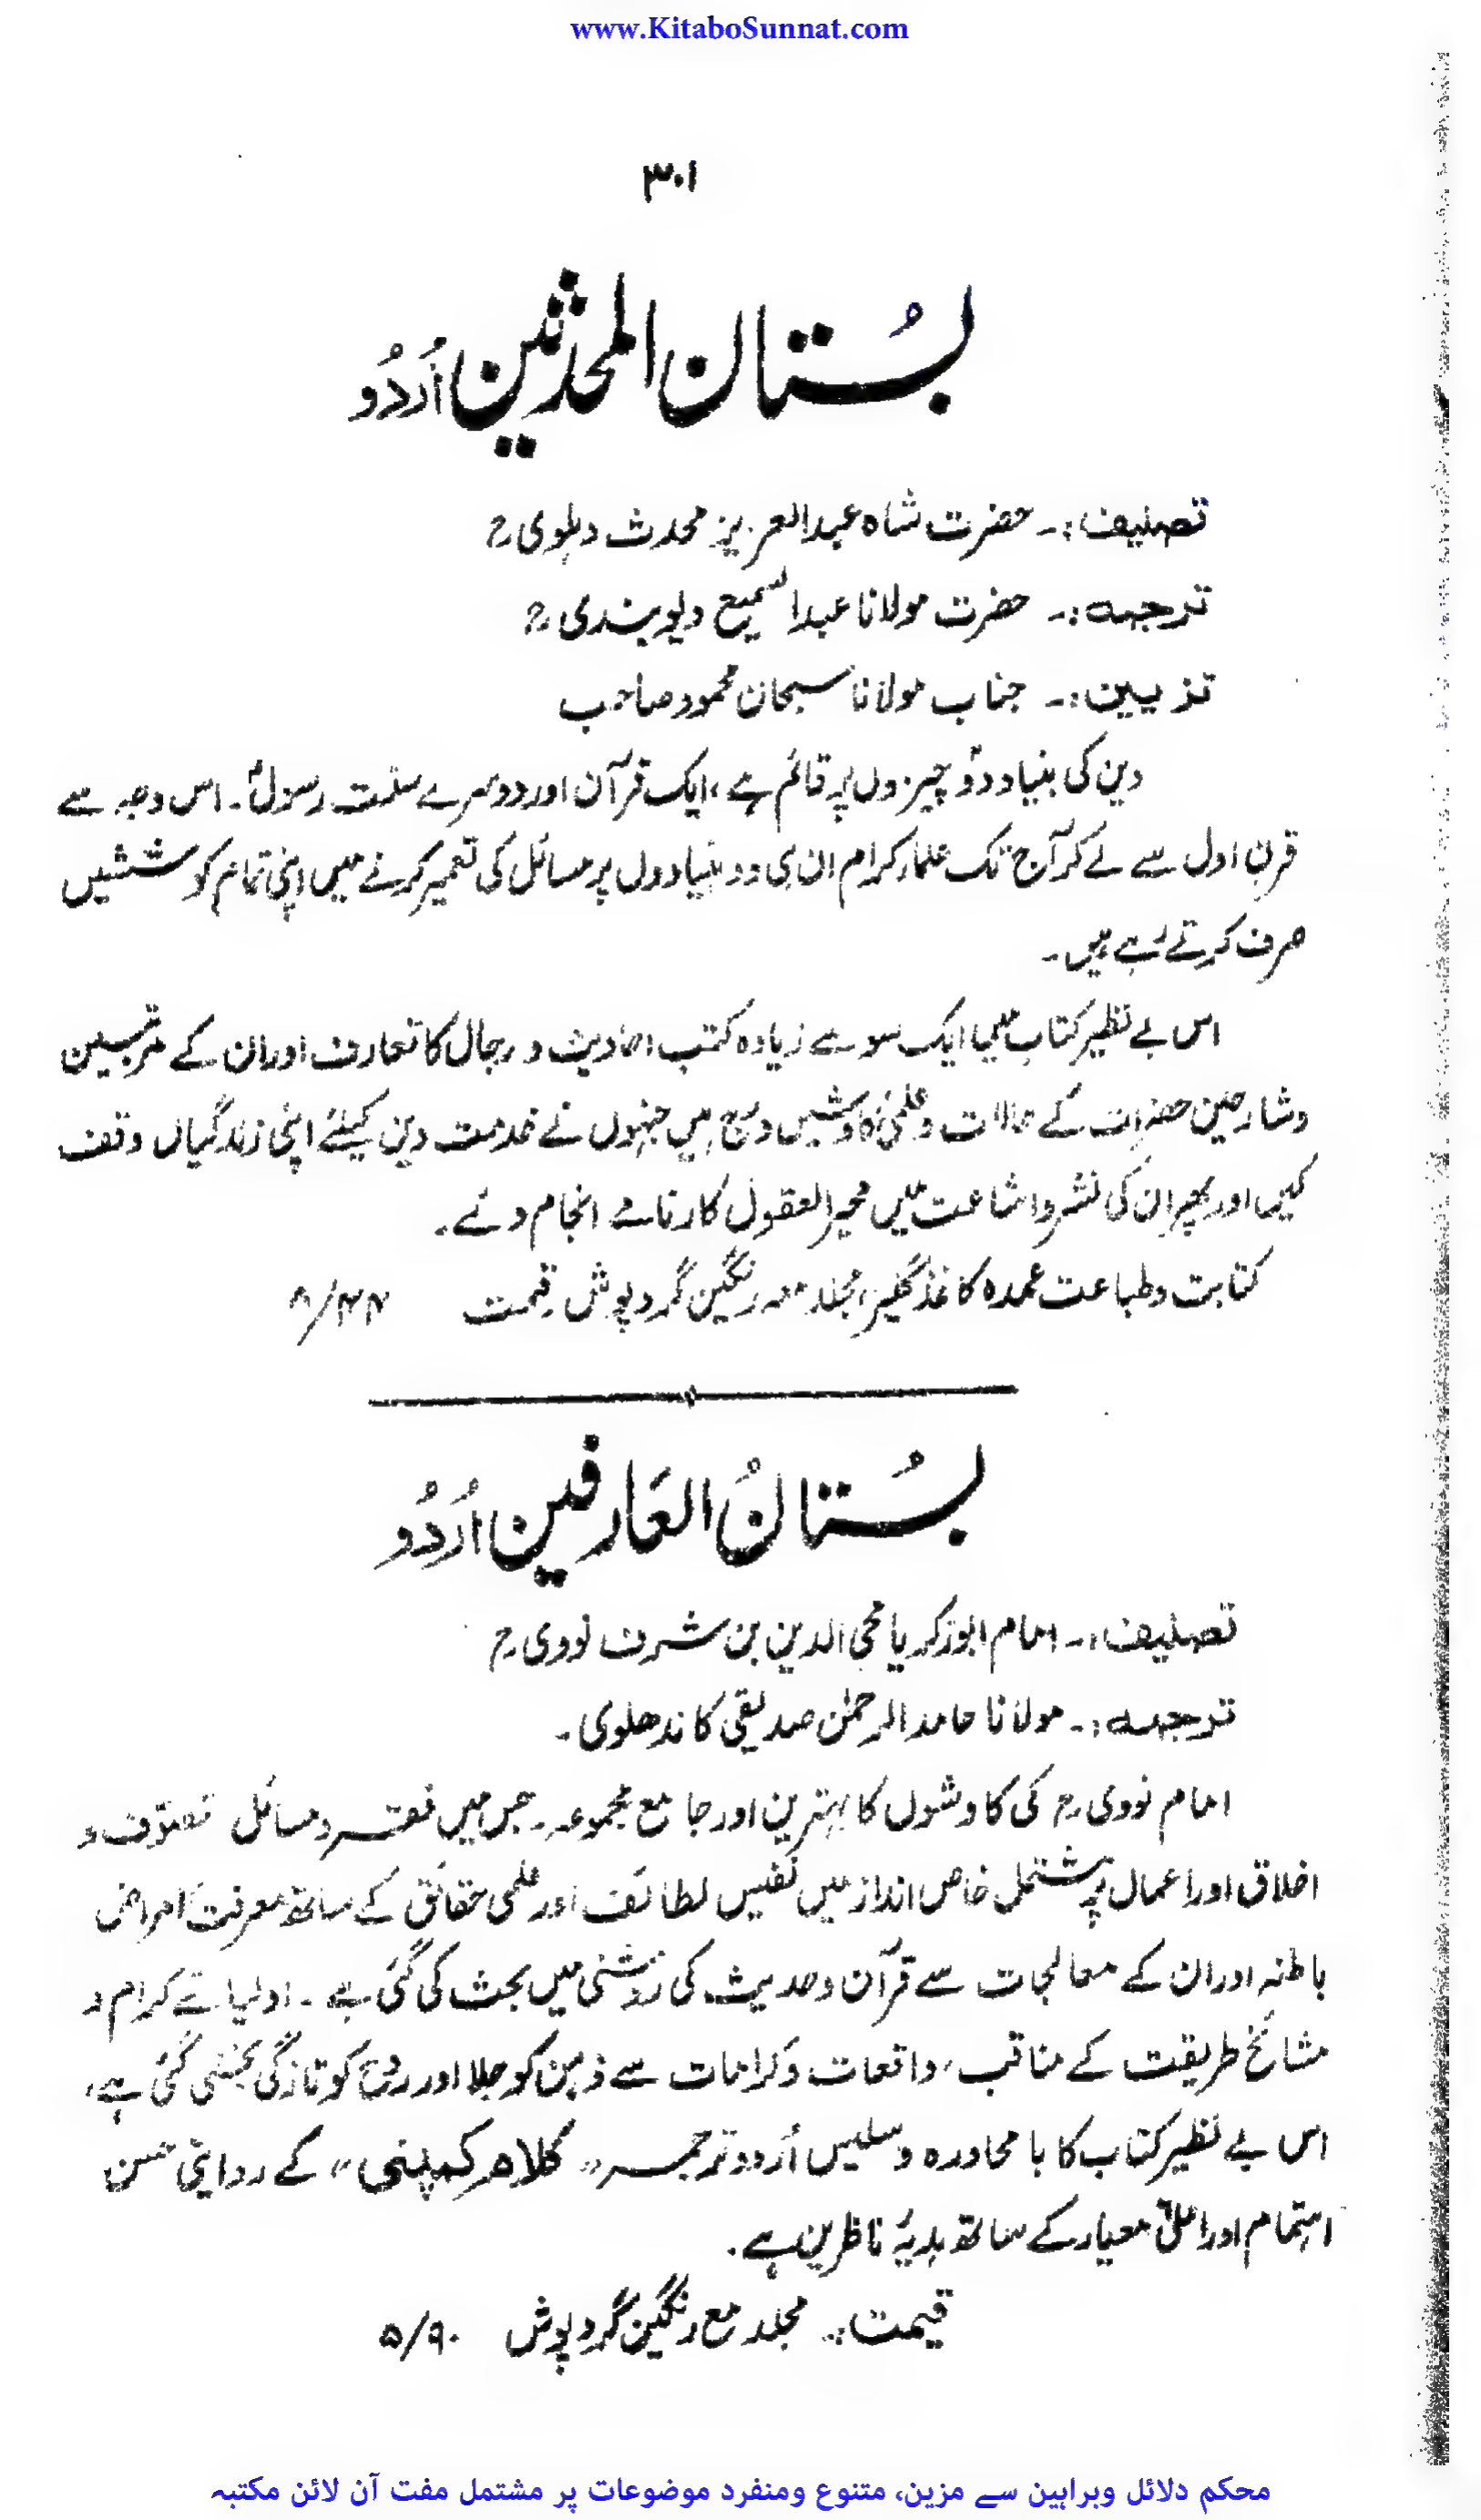 www.KitaboSunnat.com
۳۰۱
بُستان المحدثین اُردُو
تصنیف:۔ حضرت شاہ عبدالعزیز محدث دہلوی رح
ترجمہ:۔ حضرت مولانا عبدالسمیع دیوبندی رح
تزیین:۔ جناب مولانا سبحان محمود صاحب
دین کی بنیاد دو چیزوں پر قائم ہے، ایک قرآن اور دوسرے سنّت رسولؐ۔ اس وجہ سے
قرنِ اول سے لے کر آج تک علمار کرام ان ہی دو بنیادوں پر مسائل کی تعمیر کرنے میں اپنی تمام کوششیں
صرف کرتے رہے ہیں۔
اس بے نظیر کتاب میں ایک سو سے زیادہ کتب احادیث و رجال کا تعارف اور ان کے مرتبین
و شارحین حضرات کے حالات و علمی کاوشیں درج ہیں جنہوں نے خدمت دین کیلئے اپنی زندگیاں وقف
کیں اور پھر ان کی نشر و اشاعت میں محیر العقول کارنامے انجام دئے۔
کتابت و طباعت عمدہ کاغذ گلیز، مجلد معہ رنگین گرد پوش قیمت ۸/۴۴
بُستانُ العَارفین اُردُو
تصنیف:۔ امام ابو زکریا محی الدین بن شرف نووی رح
ترجمہ:۔ مولانا حامد الرحمٰن صدیقی کاندھلوی۔
امام نووی رح کی کاوشوں کا بہترین اور جامع مجموعہ۔ جس میں فقہ و مسائل تصوّف و
اخلاق اور اعمال پر مشتمل خاص انداز میں نفیس لطائف اور علمی حقائق کے ساتھ معرفت امراض
باطنہ اور ان کے معالجات سے قرآن و حدیث کی روشنی میں بحث کی گئی ہے۔ اولیائے کرام و
مشائخ طریقت کے مناقب، واقعات و کرامات سے ذہن کو جلا اور روح کو تازگی بخشی گئی ہے،
اس بے نظیر کتاب کا با محاورہ و سلیس اُردو ترجمہ "کلام کمپنی" کے روایتی حسن
اہتمام اور اعلیٰ معیار کے ساتھ ہدیۂ ناظرین ہے۔
قیمت:۔ مجلد مع رنگین گرد پوش ۵/۹۰
محکم دلائل وبراہین سے مزین، متنوع ومنفرد موضوعات پر مشتمل مفت آن لائن مکتبہ